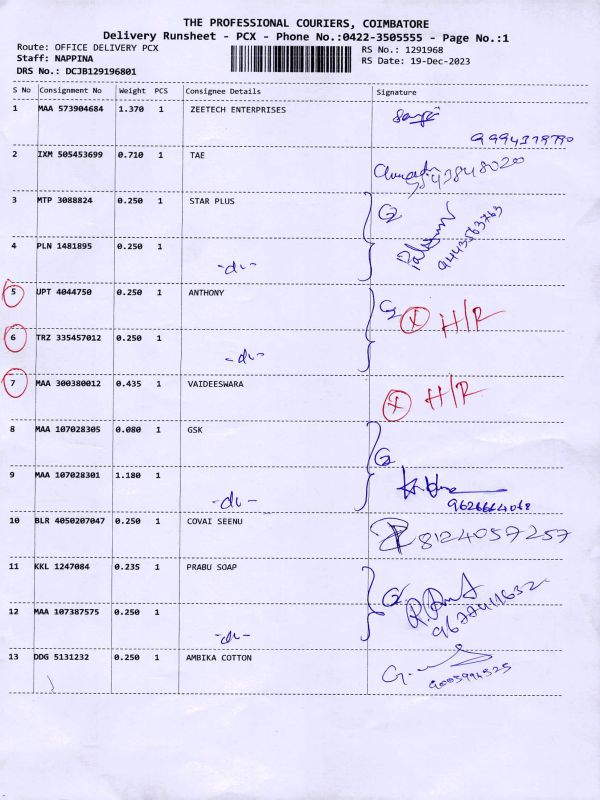 THE PROFESSIONAL COURIERS, COIMBATORE
Delivery Runsheet - PCX - Phone No.:0422-3505555 - Page No.:1
Route: OFFICE DELIVERY PCX RS No.: 1291968
Staff: NAPPINA RS Date: 19-Dec-2023
DRS No.: DCJB129196801
S No Consignment No Weight PCS Consignee Details Signature
1 MAA 573904684 1.370 1 ZEETECH ENTERPRISES
9994379790
2 IXM 505453699 0.710 1 TAE
3 MTP 3088824 0.250 1 STAR PLUS
9443563763
4 PLN 1481895 0.250 1
-do-
5 UPT 4044750 0.250 1 ANTHONY
X H/R
6 TRZ 335457012 0.250 1
-do-
7 MAA 300380012 0.435 1 VAIDEESWARA
X H/R
8 MAA 107028305 0.080 1 GSK
9 MAA 107028301 1.180 1
-do-
10 BLR 4050207047 0.250 1 COVAI SEENU
8124057257
11 KKL 1247084 0.235 1 PRABU SOAP
12 MAA 107387575 0.250 1
-do-
13 DDG 5131232 0.250 1 AMBIKA COTTON